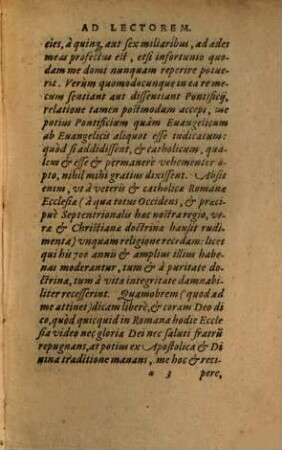 AD LECTOREM.
eies, à quinq; aut sex miliaribus, ad ædes
meas profectus est, etsi infortunio quo-
dam me domi nunquam reperire potue-
rit. Verùm quomodocunque in ea re me-
cum sentiant aut dissentiant Pontificij,
relatione tamen postmodum accepi, me
potius Pontificium quàm Euangelicum
ab Euangelicis aliquot esse iudicatum:
quòd si addidissent, & catholicum, qua-
lem & esse & permanere vehementer o-
pto, nihil mihi gratius dixissent. Absit
enim, vt à veteris & catholicæ Romanæ
Ecclesiæ (à qua totus Occidens, & præci-
puè Septentrionalis hæc nostra regio, ve-
ræ & Christianæ doctrinæ hausit rudi-
menta) vnquam religione recedam: licet
qui his 700 annis & amplius illius habe-
nas moderantur, tum & à puritate do-
ctrinæ, tum à vitæ integritate damnabi-
liter recesserint. Quamobrem (quod ad
me attinet) dicam liberè, & coram Deo di-
co, quòd quicquid in Romana hodie Eccle-
sia video nec gloriæ Dei nec saluti fratrũ
repugnans, at potius ex Apostolica & Di-
uina traditione manans, me hoc & reci-
u 3 pere,